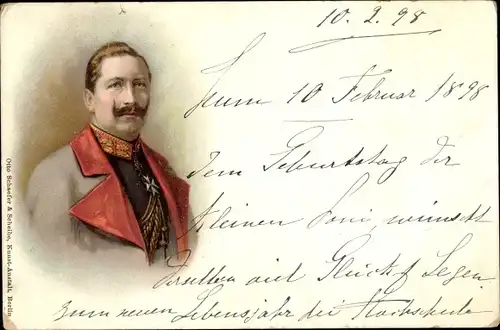 10. 2. 98
Zum 10 Februar 1898
dem Geburtstag der
kleinen Toni, wünscht
derselben viel Glück & Segen
zum neuen Lebensjahr die
Otto Schaefer & Scheibe, Kunst-Anstalt, Berlin